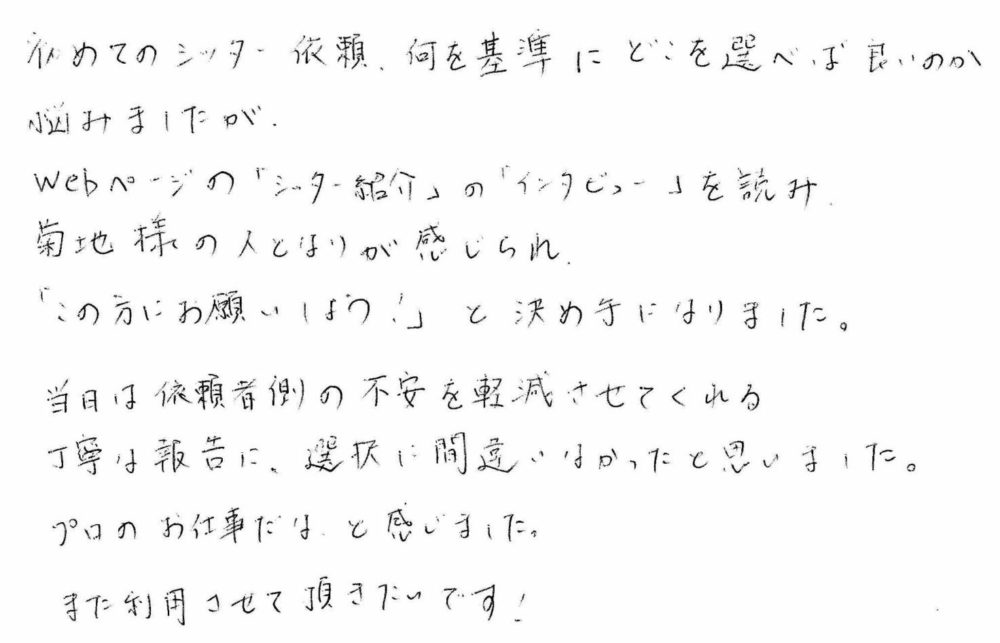 初めてのシッター依頼、何を基準にどこを選べば良いのか
悩みましたが、
Webページの「シッター紹介」の「インタビュー」を読み、
菊地様の人となりが感じられ、
「この方にお願いしよう!」と決め手になりました。
当日は依頼者側の不安を軽減させてくれる
丁寧な報告に、選択に間違いなかったと思いました。
プロのお仕事だな、と感じました。
また利用させて頂きたいです!